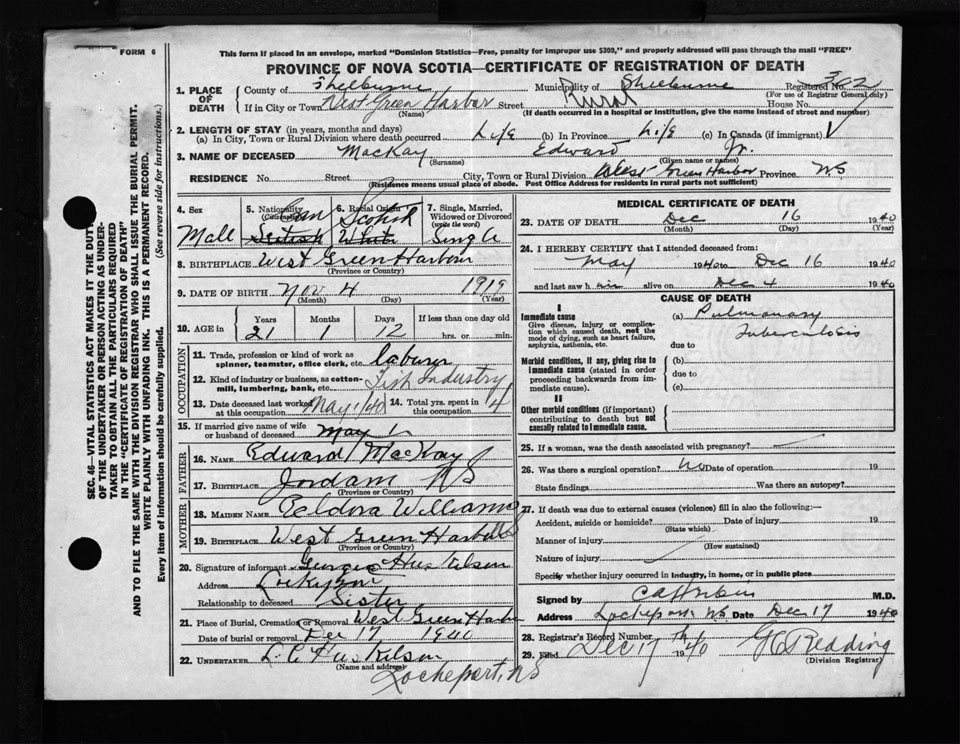 FORM 6
This form if placed in an envelope, marked "Dominion Statistics—Free, penalty for improper use $300," and properly addressed will pass through the mail "FREE"
PROVINCE OF NOVA SCOTIA—CERTIFICATE OF REGISTRATION OF DEATH
1. PLACE OF DEATH County of Shelburne Municipality of Shelburne Registered No. 302
(For use of Registrar General only)
If in City or Town West Green Harbor Street Rural House No.
(Name) (If death occurred in a hospital or institution, give the name instead of street and number)
2. LENGTH OF STAY (in years, months and days)
(a) In City, Town or Rural Division where death occurred Life (b) In Province Life (c) In Canada (if immigrant)
3. NAME OF DECEASED MacKay Edward Jr.
(Surname) (Given name or names)
RESIDENCE No. Street City, Town or Rural Division West Green Harbor Province NS
(Residence means usual place of abode. Post Office Address for residents in rural parts not sufficient)
4. Sex Male
5. Nationality (Citizenship) Can
6. Racial Origin Scotish White
7. Single, Married, Widowed or Divorced (write the word) Single
8. BIRTHPLACE West Green Harbour
(Province or Country)
9. DATE OF BIRTH Nov 4 1919
(Month) (Day) (Year)
10. AGE in Years Months Days If less than one day old
21 1 12 hrs. or min.
OCCUPATION
11. Trade, profession or kind of work as spinner, teamster, office clerk, etc. laburer
12. Kind of industry or business, as cotton-mill, lumbering, bank, etc. Fish Industry
13. Date deceased last worked at this occupation May 1/40 14. Total yrs. spent in this occupation 4
15. If married give name of wife or husband of deceased
FATHER
16. NAME Edward MacKay
17. BIRTHPLACE Jordan NS
(Province or Country)
MOTHER
18. MAIDEN NAME Eeldora Williams
19. BIRTHPLACE West Green Harbor
(Province or Country)
20. Signature of informant Huskilson
Address Lockeport
Relationship to deceased Sister
21. Place of Burial, Cremation or Removal West Green Harbor
Date of burial or removal Dec 17 1940
22. UNDERTAKER L. C. Huskilson
(Name and address)
Lockeport, NS
MEDICAL CERTIFICATE OF DEATH
23. DATE OF DEATH Dec 16 1940
(Month) (Day) (Year)
24. I HEREBY CERTIFY that I attended deceased from:
May 1940 to Dec 16 1940
and last saw him alive on Dec 4 1940
CAUSE OF DEATH
I
Immediate cause
Give disease, injury or complication which caused death, not the mode of dying, such as heart failure, asphyxia, asthenia, etc.
(a) Pulmonary Tuberculosis
due to
Morbid conditions, if any, giving rise to immediate cause (stated in order proceeding backwards from immediate cause).
(b)
due to
(c)
II
Other morbid conditions (if important) contributing to death but not causally related to immediate cause.
25. If a woman, was the death associated with pregnancy?
26. Was there a surgical operation? No Date of operation 19
State findings Was there an autopsy?
27. If death was due to external causes (violence) fill in also the following:—
Accident, suicide or homicide? Date of injury 19
(State which)
Manner of injury
(How sustained)
Nature of injury
Specify whether injury occurred in industry, in home, or in public place
Signed by M.D.
Address Lockeport NS Date Dec 17 1940
28. Registrar's Record Number
29. Filed Dec 17th 1940 G C Redding
(Division Registrar)
SEC. 46—VITAL STATISTICS ACT MAKES IT THE DUTY
OF THE UNDERTAKER OR PERSON ACTING AS UNDER-
TAKER TO OBTAIN ALL THE PARTICULARS REQUIRED
IN THE "CERTIFICATE OF REGISTRATION OF DEATH"
AND TO FILE THE SAME WITH THE DIVISION REGISTRAR WHO SHALL ISSUE THE BURIAL PERMIT.
WRITE PLAINLY WITH UNFADING INK. THIS IS A PERMANENT RECORD.
Every item of information should be carefully supplied. (See reverse side for instructions.)